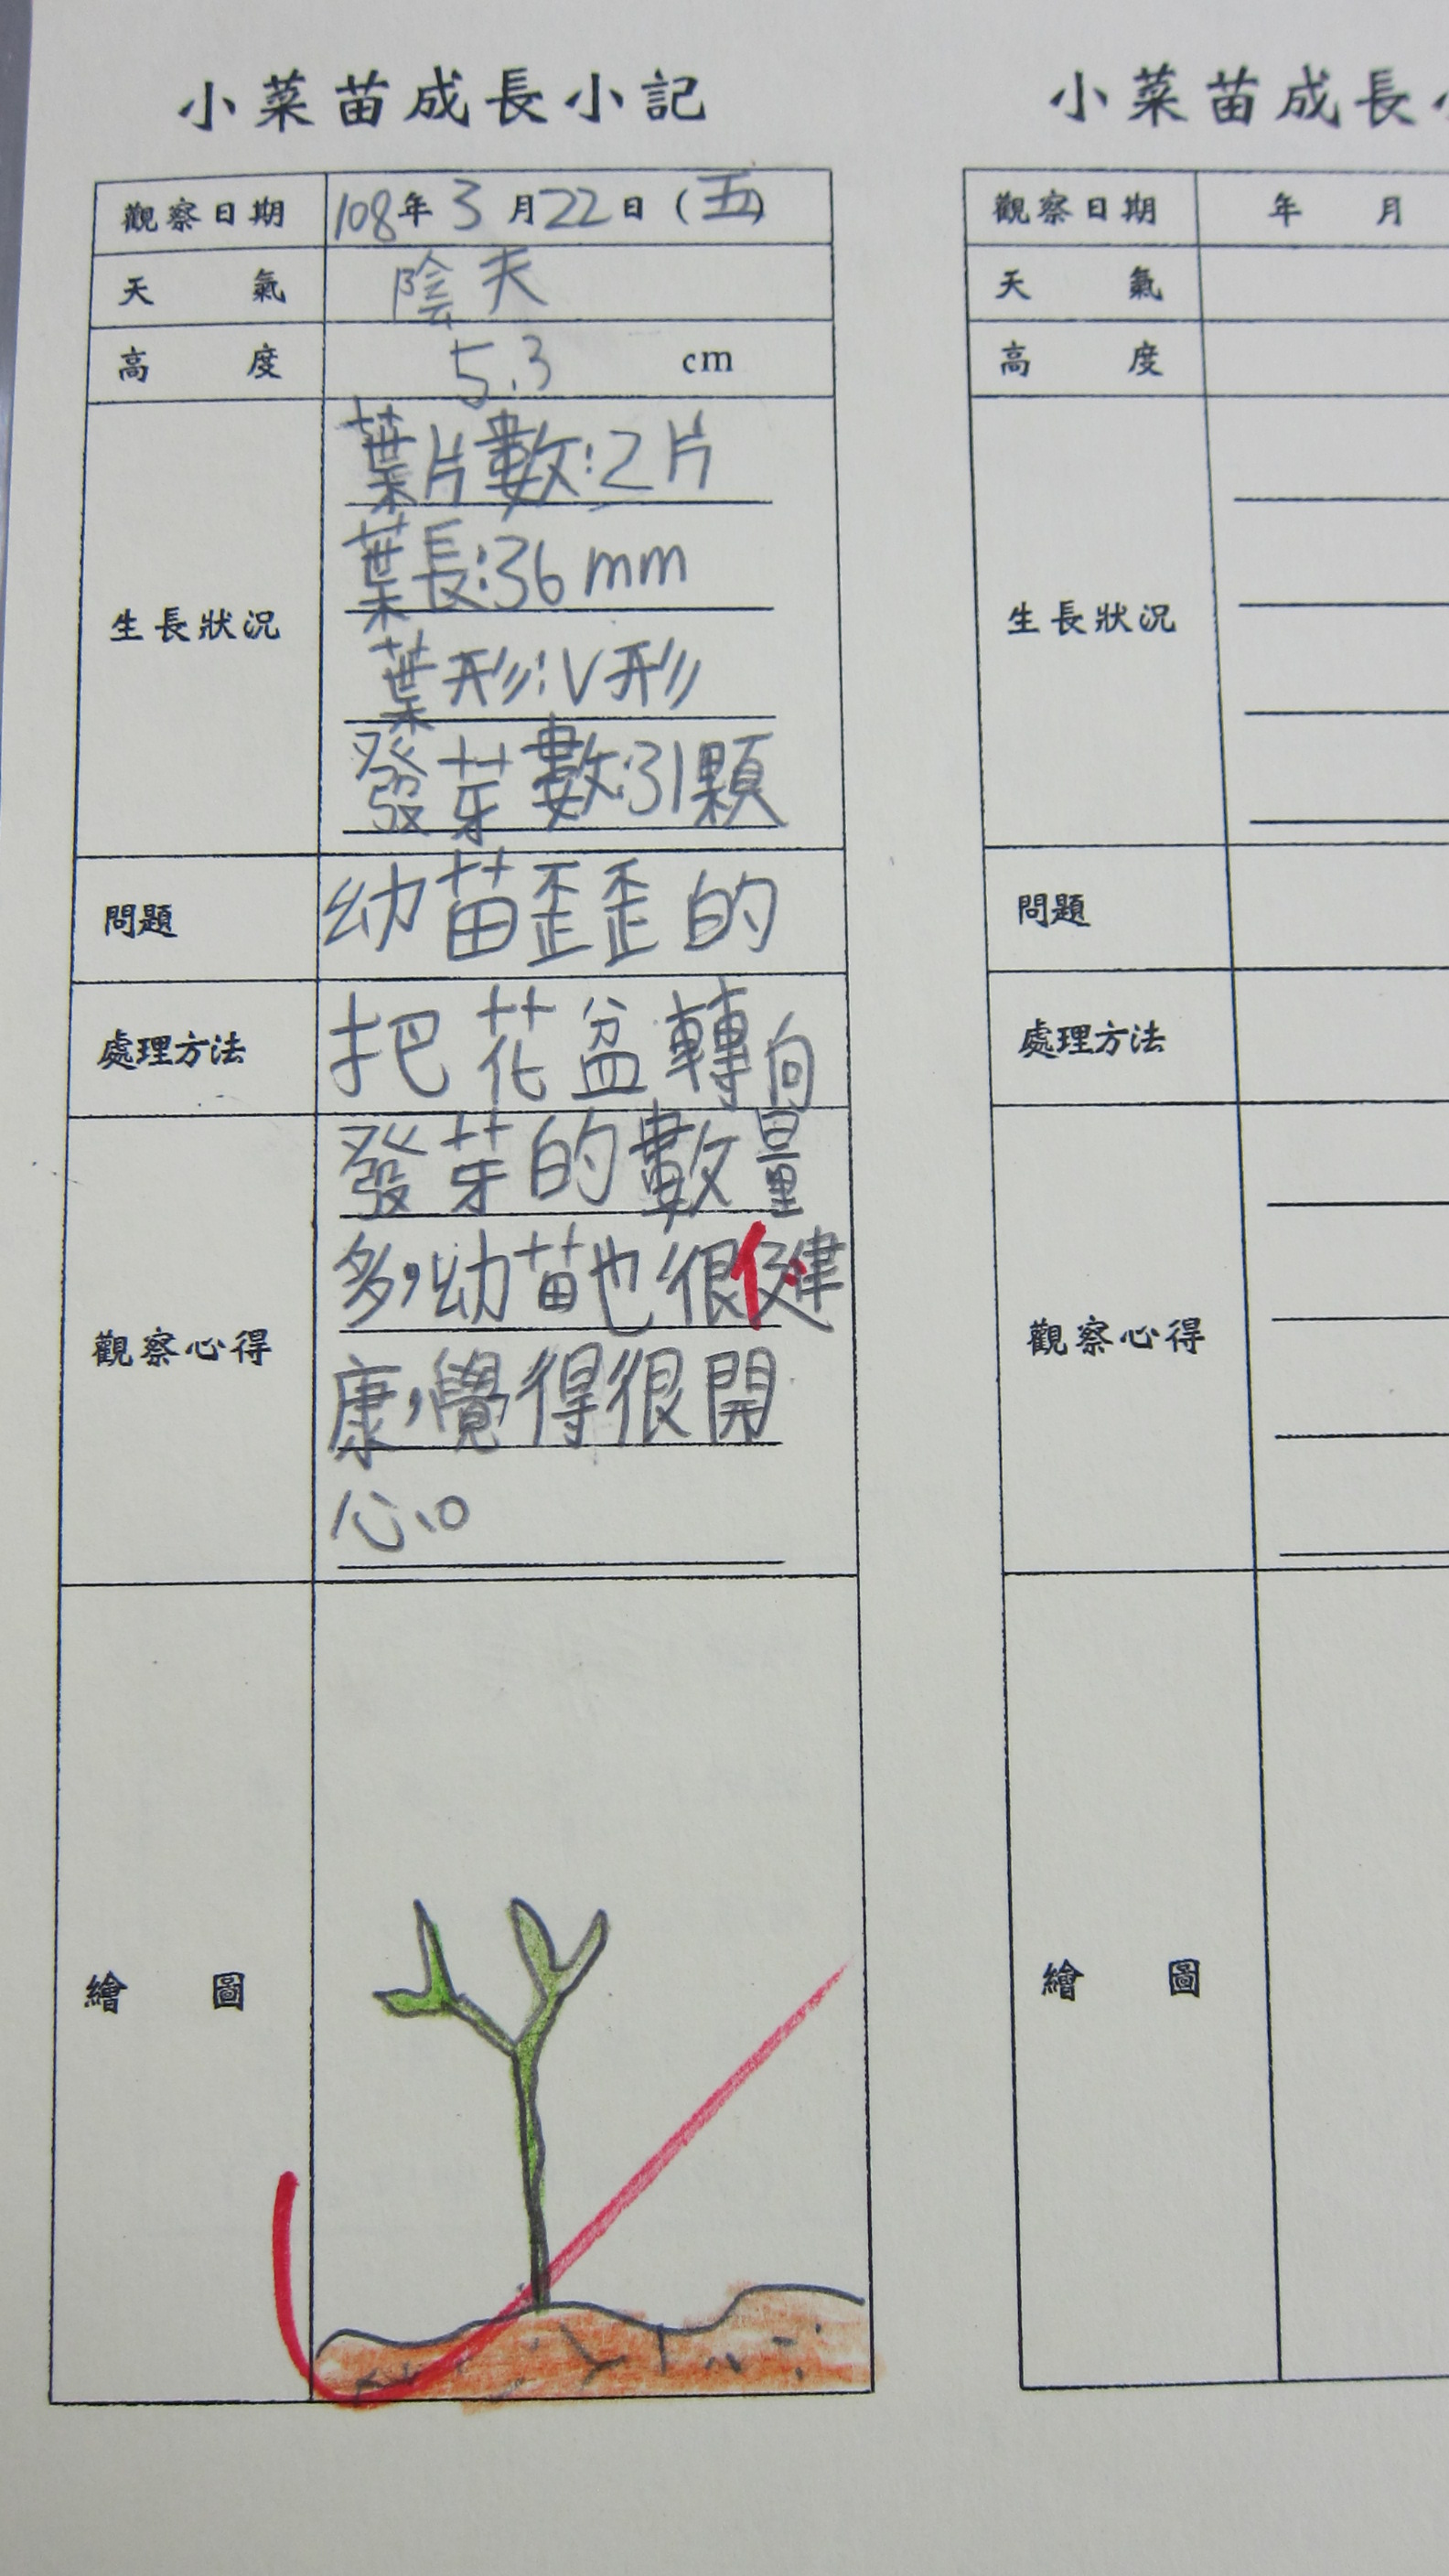 小菜苗成長小記
觀察日期 108年3月22日(五)
天氣 陰天
高度 5.3 cm
生長狀況
葉片數:2片
葉長:36mm
葉形:V形
發芽數:31顆
問題 幼苗歪歪的
處理方法 把花盆轉向
觀察心得
發芽的數量
多,幼苗也很健
康,覺得很開
心。
繪圖
小菜苗成長小
觀察日期 年 月
天氣
高度
生長狀況
問題
處理方法
觀察心得
繪圖